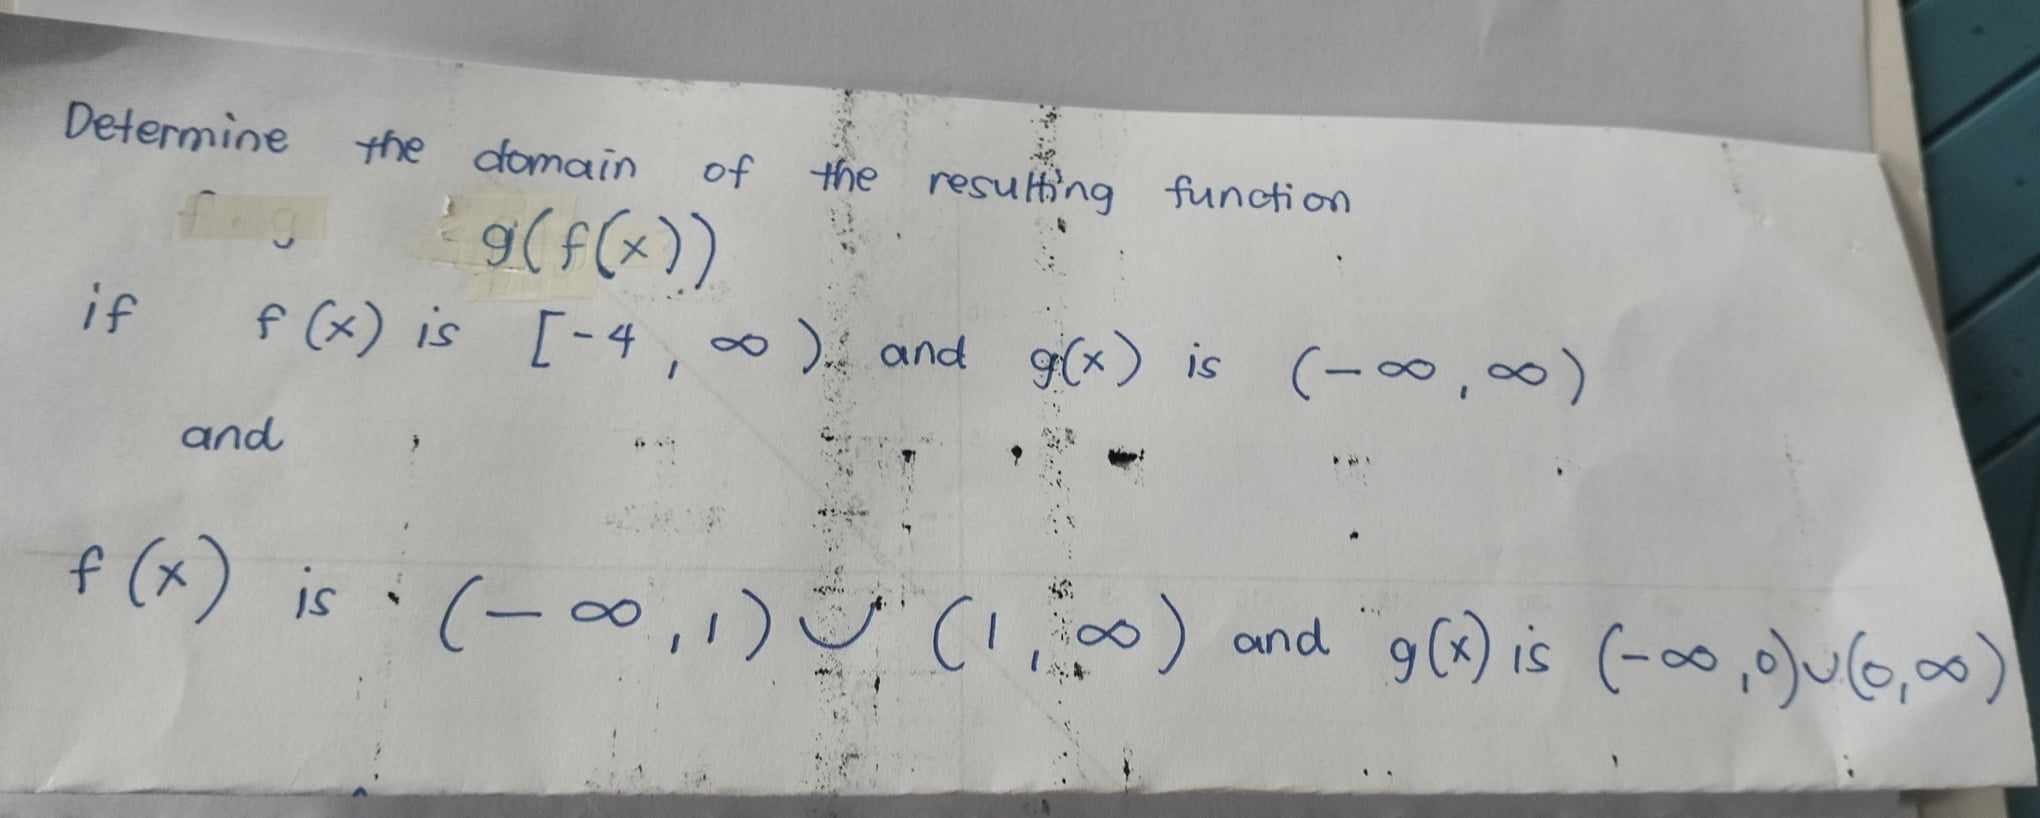 Determine the domain of the resulting function
g(f(x))
if f(x) is [-4, ∞) and g(x) is (-∞, ∞)
and
f(x) is (-∞, 1) ∪ (1, ∞) and g(x) is (-∞, 0) ∪ (0, ∞)